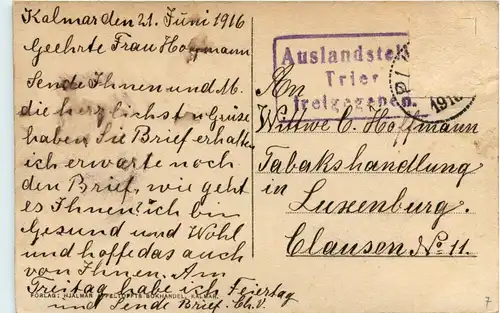 Kalmar den 21. Juni 1916
Geehrte Frau Hoffmann
Sende Ihnen und M.
die herzlichsten Grüse
haben Sie Brief erhalten
ich erwarte noch
den Brief, wie geht
es Ihnen? ich bin
Gesund und Wohl
und hoffe das auch
von Ihnen. Am
Freitag habe ich Feiertag
und Sende Brief. Ch. V.
FÖRLAG: HJALMAR APPELTOFFTS BOKHANDEL, KALMAR.
Auslandstelle
Trier
freigegeben.
1916
An
Wittwe C. Hoffmann
Tabakshandlung
in
Luxenburg.
Clausen No 11.
7